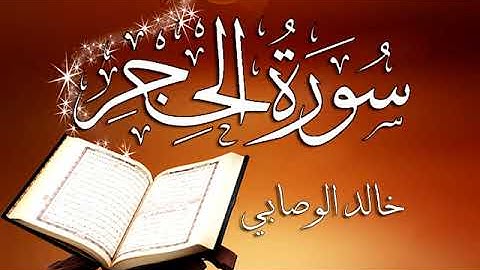 سُورَةُ الحِجرِ
خالد الوصابي